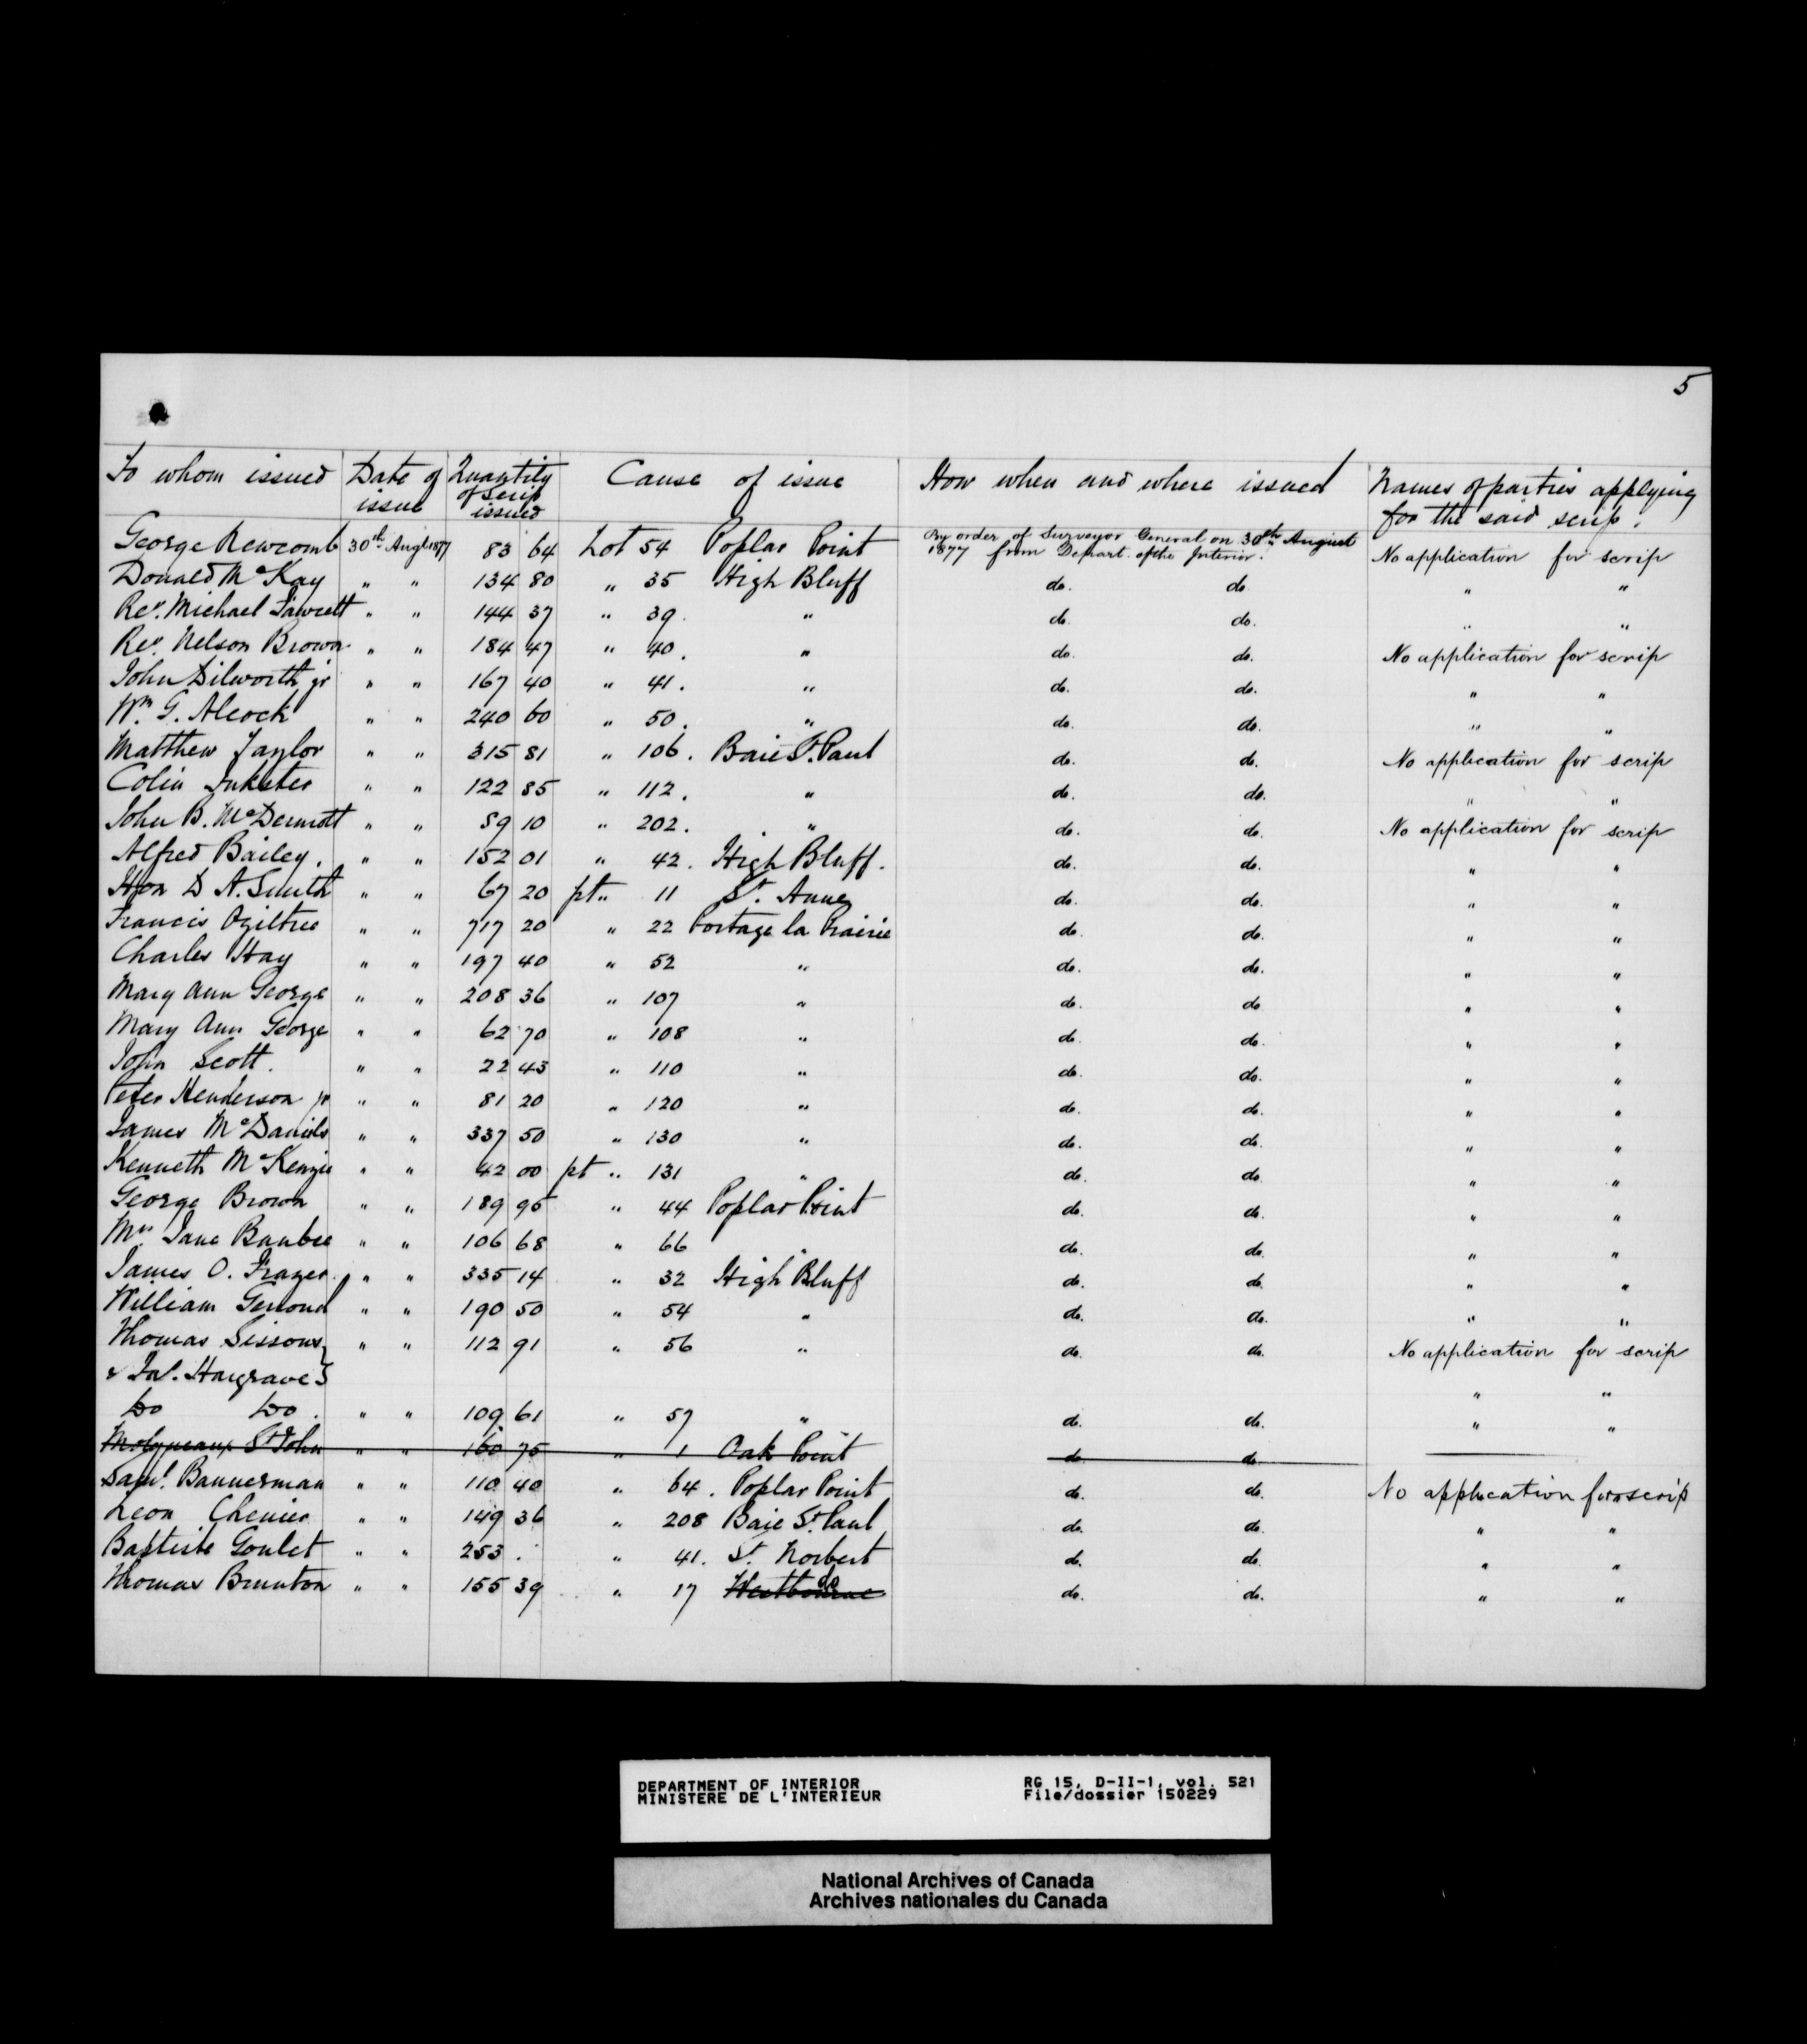 5
To whom issued Date of issue Quantity of Scrip issued Cause of issue How when and where issued Names of parties applying for the said scrip.
George Newcomb 30th Augt 1877 83 64 Lot 54 Poplar Point By order of Surveyor General on 30th August 1877 from Depart. of the Interior. No application for scrip
Donald McKay " " 134 80 " 35 High Bluff do. do " "
Rev. Michael Fawcett " " 144 37 " 39 " do. do. " "
Rev. Nelson Brown " " 184 47 " 40. " do. do. No application for scrip
John Dilworth jr " " 167 40 " 41. " do. do. " "
Wm. G. Alcock " " 240 60 " 50. " do. do. " "
Matthew Taylor " " 315 81 " 106. Baie St. Paul do. do. No application for scrip
Colin Inkster " " 122 85 " 112. " do. do. " "
John B. McDermott " " 59 10 " 202. " do. do. No application for scrip
Alfred Bailey. " " 152 01 " 42. High Bluff. do. do. " "
Hon D A. Smith " " 67 20 pt " 11 St. Anne do. do. " "
Francis Ogiltree " " 717 20 " 22 Portage la Prairie do. do. " "
Charles Hay " " 197 40 " 52 " do. do. " "
Mary Ann George " " 208 36 " 107 " do. do " "
Mary Ann George " " 62 70 " 108 " do. do. " "
John Scott. " " 22 43 " 110 " do. do. " "
Peter Henderson jr " " 81 20 " 120 " do. do. " "
James McDaniels " " 337 50 " 130 " do. do. " "
Kenneth McKenzie " " 42 00 pt " 131 " do. do. " "
George Brown " " 189 95 " 44 Poplar Point do. do. " "
Mrs Jane Bunbee " " 106 68 " 66 " do. do. " "
James O. Frazer. " " 335 14 " 32 High Bluff do. do. " "
William Gerrond " " 190 50 " 54 " do. do. " "
Thomas Sissons } " " 112 91 " 56 " do. do. No application for scrip
& Jas. Hargrave } " "
Do Do. " " 109 61 " 57 " do. do. " "
Molyneaux St John " " 160 75 " 1 Oak Point do do
Saml. Bannerman " " 110 40 " 64. Poplar Point do. do. No application for scrip
Leon Chenier " " 149 36 " 208 Baie St. Paul do. do. " "
Baptiste Goulet " " 253 . " 41. St. Norbert do. do. " "
Thomas Brunton " " 155 39 " 17 Westbourne do do. do. " "
DEPARTMENT OF INTERIOR
MINISTERE DE L'INTERIEUR
RG 15, D-II-1, vol. 521
File/dossier 150229
National Archives of Canada
Archives nationales du Canada